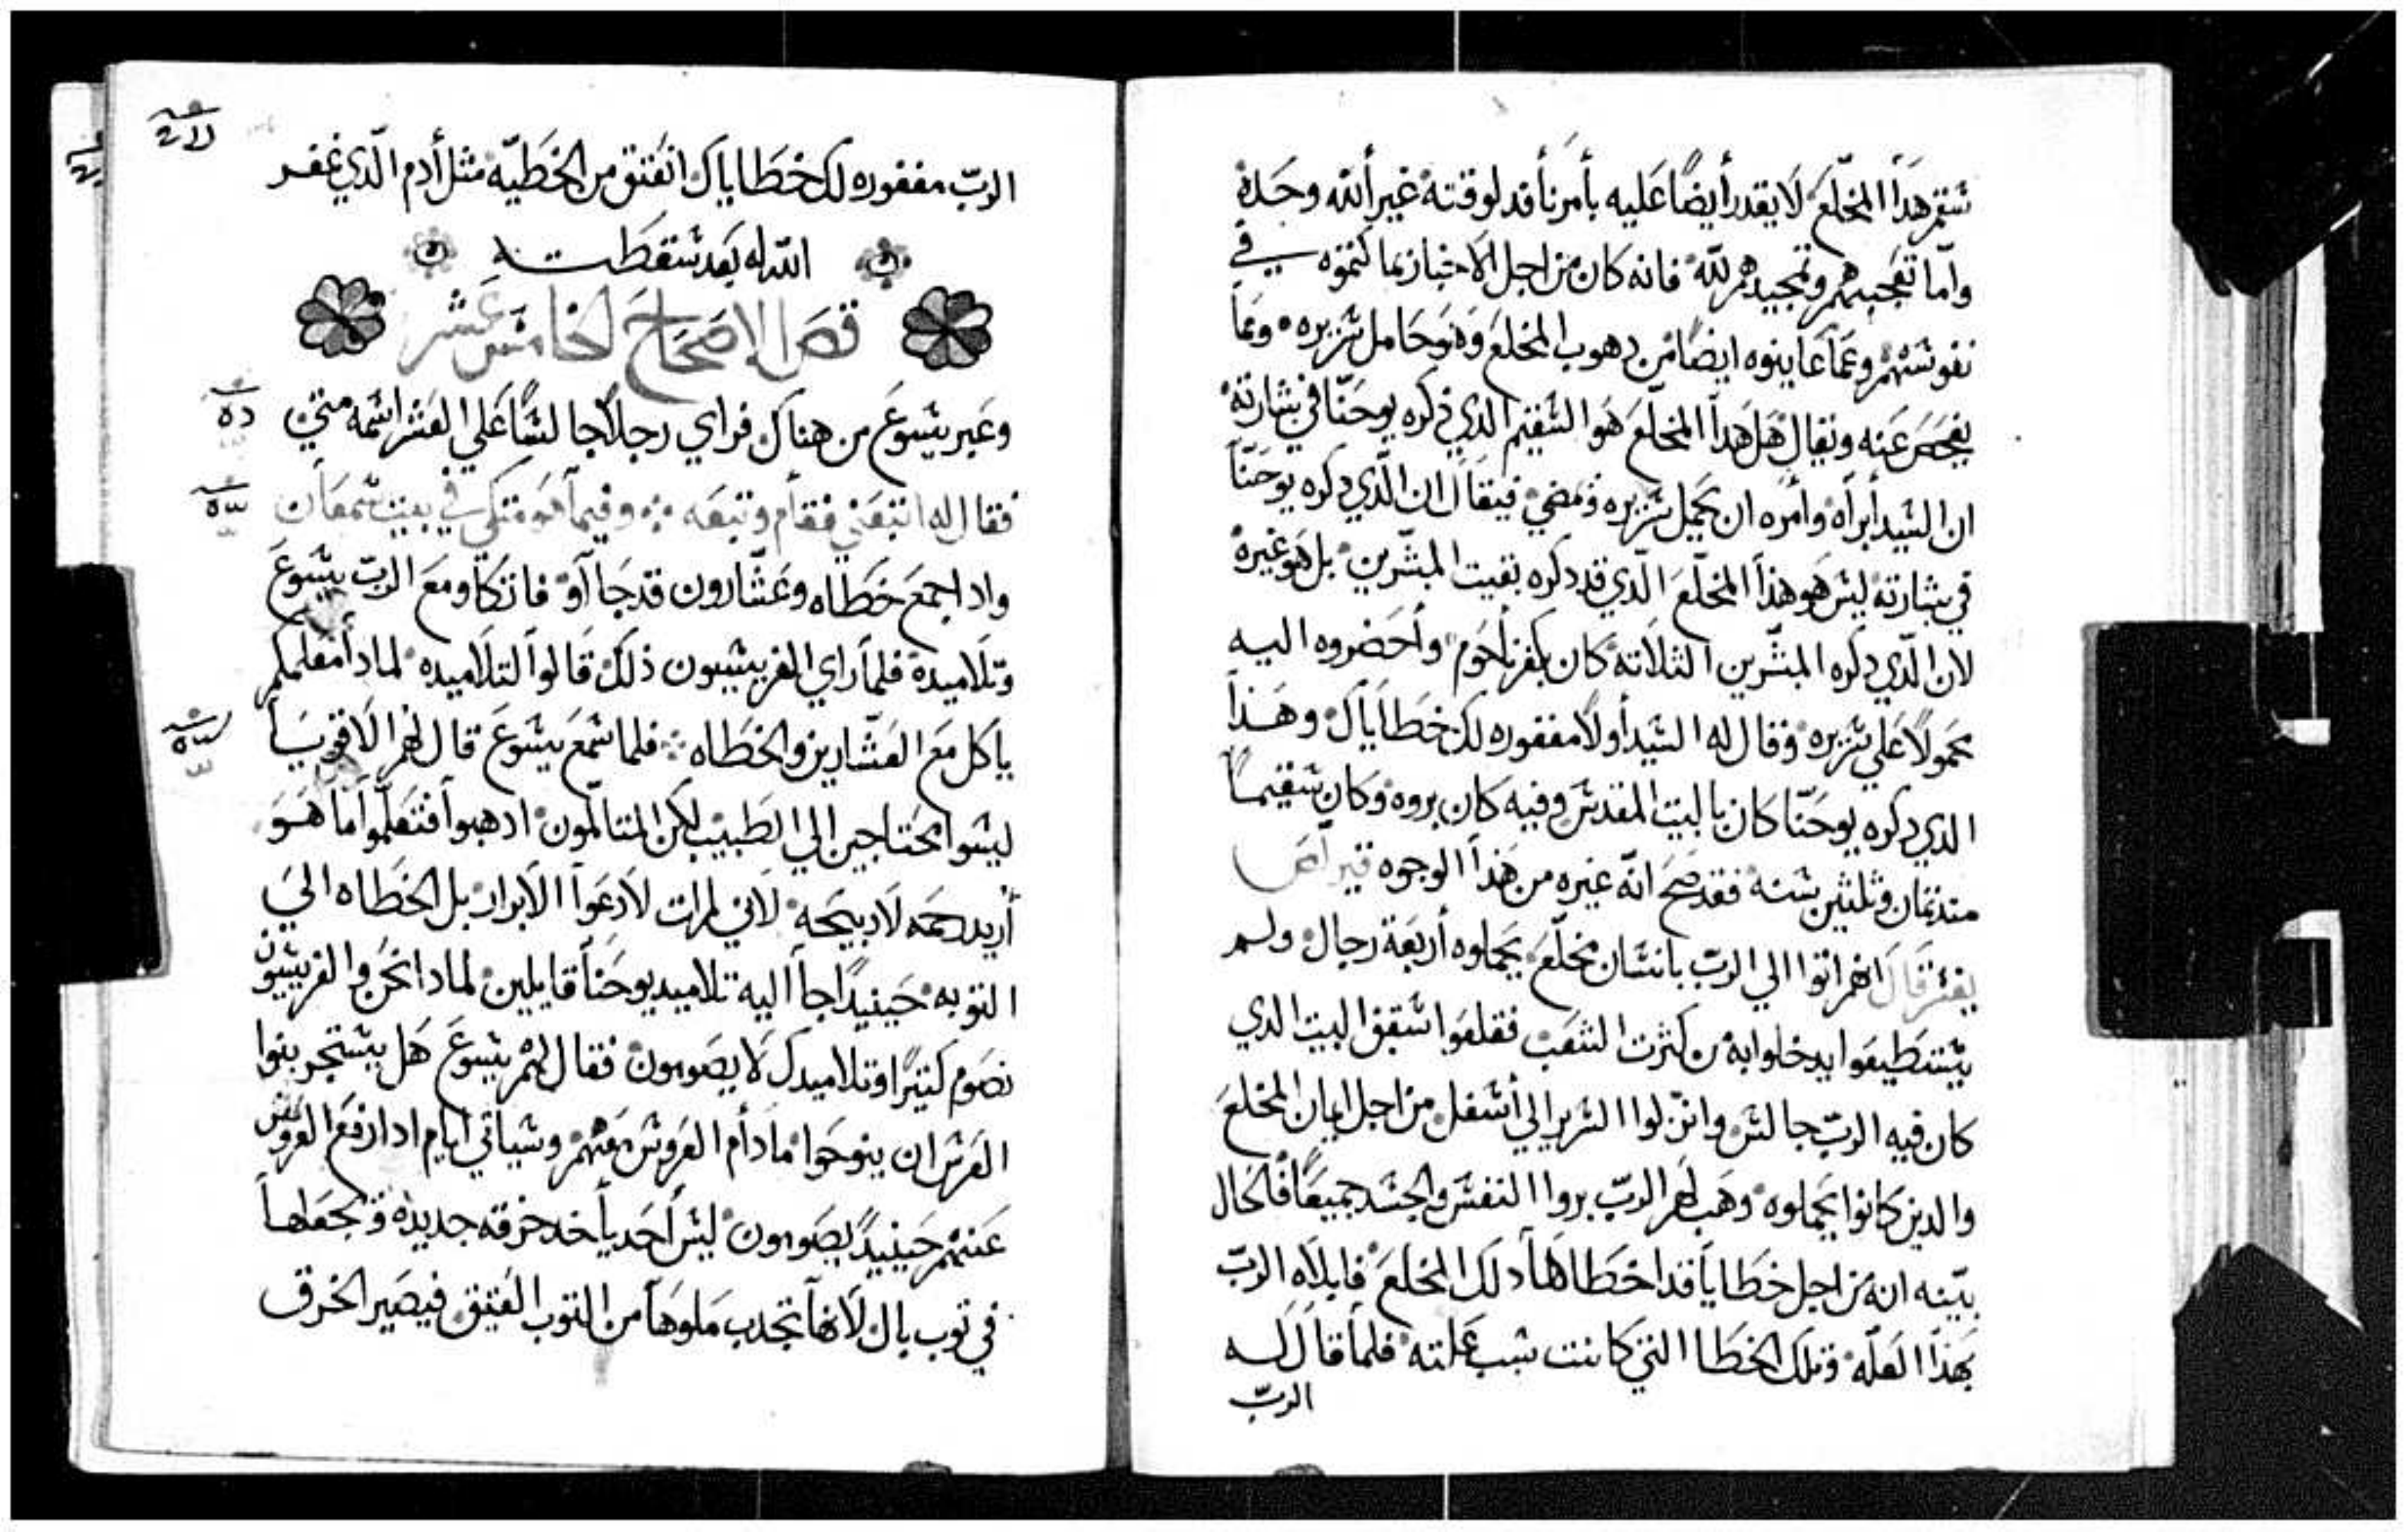 سقم هدا المخلّع لا يقدر أيضًا عليه بأمر نافد لوقته غير الله وحده
وامّا تعجبهم وتمجيدهم لله فانه كان من اجل الاخبار بما كتموه في
نفوسهم وعما عاينوه ايضًا من دهوب المخلع وهو حامل سريره وعما
يفحص عنه ويقال هل هدا المخلّع هو السقيم الدي ذكره يوحنّا في بشارته
ان السيد أبراه وأمره ان يحمل سريره ومضي فيقال ان الّدي دكره يوحنّا
في بشارته ليس هو هذا المخلّع الّدي قد دكره بقيت المبشّرين بل هو غيره
لان الّدي دكره المبشّرين الثلاته كان بكفرناحوم وأحضروه اليه
محمولًا علي سريره وقال له السيد أولًا مغفوره لك خطاياك وهذا
الدي دكره يوحنّا كان بالبيت المقدس وفيه كان بروه وكان سقيمًا
مند تمان وثلثين سنه فقد صح انّه غيره من هذا الوجوه
يفسّر قال انهم اتوا الي الربّ بانسان مخلّع يحملوه أربعة رجال ولم
يستطيعوا يدخلوا به من كثرت الشعب فقلعوا سقف البيت الدي
كان فيه الربّ جالس وانزلوا السرير الي أسفل من اجل ايمان المخلع
والدين كانوا يحملوه وهب لهم الربّ بروا النفس والجسد جميعًا فالحال
بيّنه انه من اجل خطايا قد اخطاها دلك المخلع فابلاه الربّ
بهذا العلّه وتلك الخطا التي كانت سبب علته فلما قال له
الربّ
الربّ مغفوره لك خطاياك انعتق من الخطيّه مثل أدم الّدي غفر
الله له بعد سقطته
فصل الإصحاح الخامس عشر
وعبر يسوع من هناك فراي رجلًا جالسًا علي العشر اسمه متي
فقال له اتبعني فقام وتبعه وفيما هو متكي في بيت سمعان
واد اجمع خطاه وعشّارون قد جاآو فاتكاو مع الربّ يسوع
وتلاميدة فلما راي الفريسيون ذلك قالوا لتلاميده لمادا معلمكم
ياكل مع العشّارين والخطاه فلما سمع يسوع قال لهم الاقويا
ليسوا محتاجين الي الطبيب لكن المتالمون ادهبوا فتعلّموا ما هو
أريد رحمه لا دبيحه لاني لم ات لادعوا الابرار بل الخطاه الي
التوبه حينيدًا جاآ اليه تلاميد يوحنا قايلين لمادا نحن والفريسيون
نصوم كتيرًا وتلاميدك لا يصومون فقال لهم يسوع هل يستجر بنوا
العرس ان ينوحوا مادام العروس معهم وسياتي ايام ادا رفع العروس
عنهم حينيدً يصومون ليس أحد ياخد خرقه جديده ويجعلها
في توب بال لانها تجدب ملوها من التوب العتيق فيصير الخرق